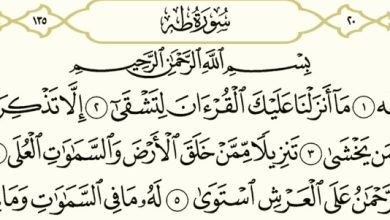 ٢٠ سُورَةُ طه ١٣٥
بِسْمِ اللَّهِ الرَّحْمَٰنِ الرَّحِيمِ
ه ١ مَآ أَنزَلْنَا عَلَيْكَ ٱلْقُرْءَانَ لِتَشْقَىٰٓ ٢ إِلَّا تَذْكِرَ
ن يَخْشَىٰ ٣ تَنزِيلًا مِّمَّنْ خَلَقَ ٱلْأَرْضَ وَٱلسَّمَٰوَٰتِ ٱلْعُلَى
حْمَٰنُ عَلَى ٱلْعَرْشِ ٱسْتَوَىٰ ٥ لَهُۥ مَا فِى ٱلسَّمَٰوَٰتِ وَمَا